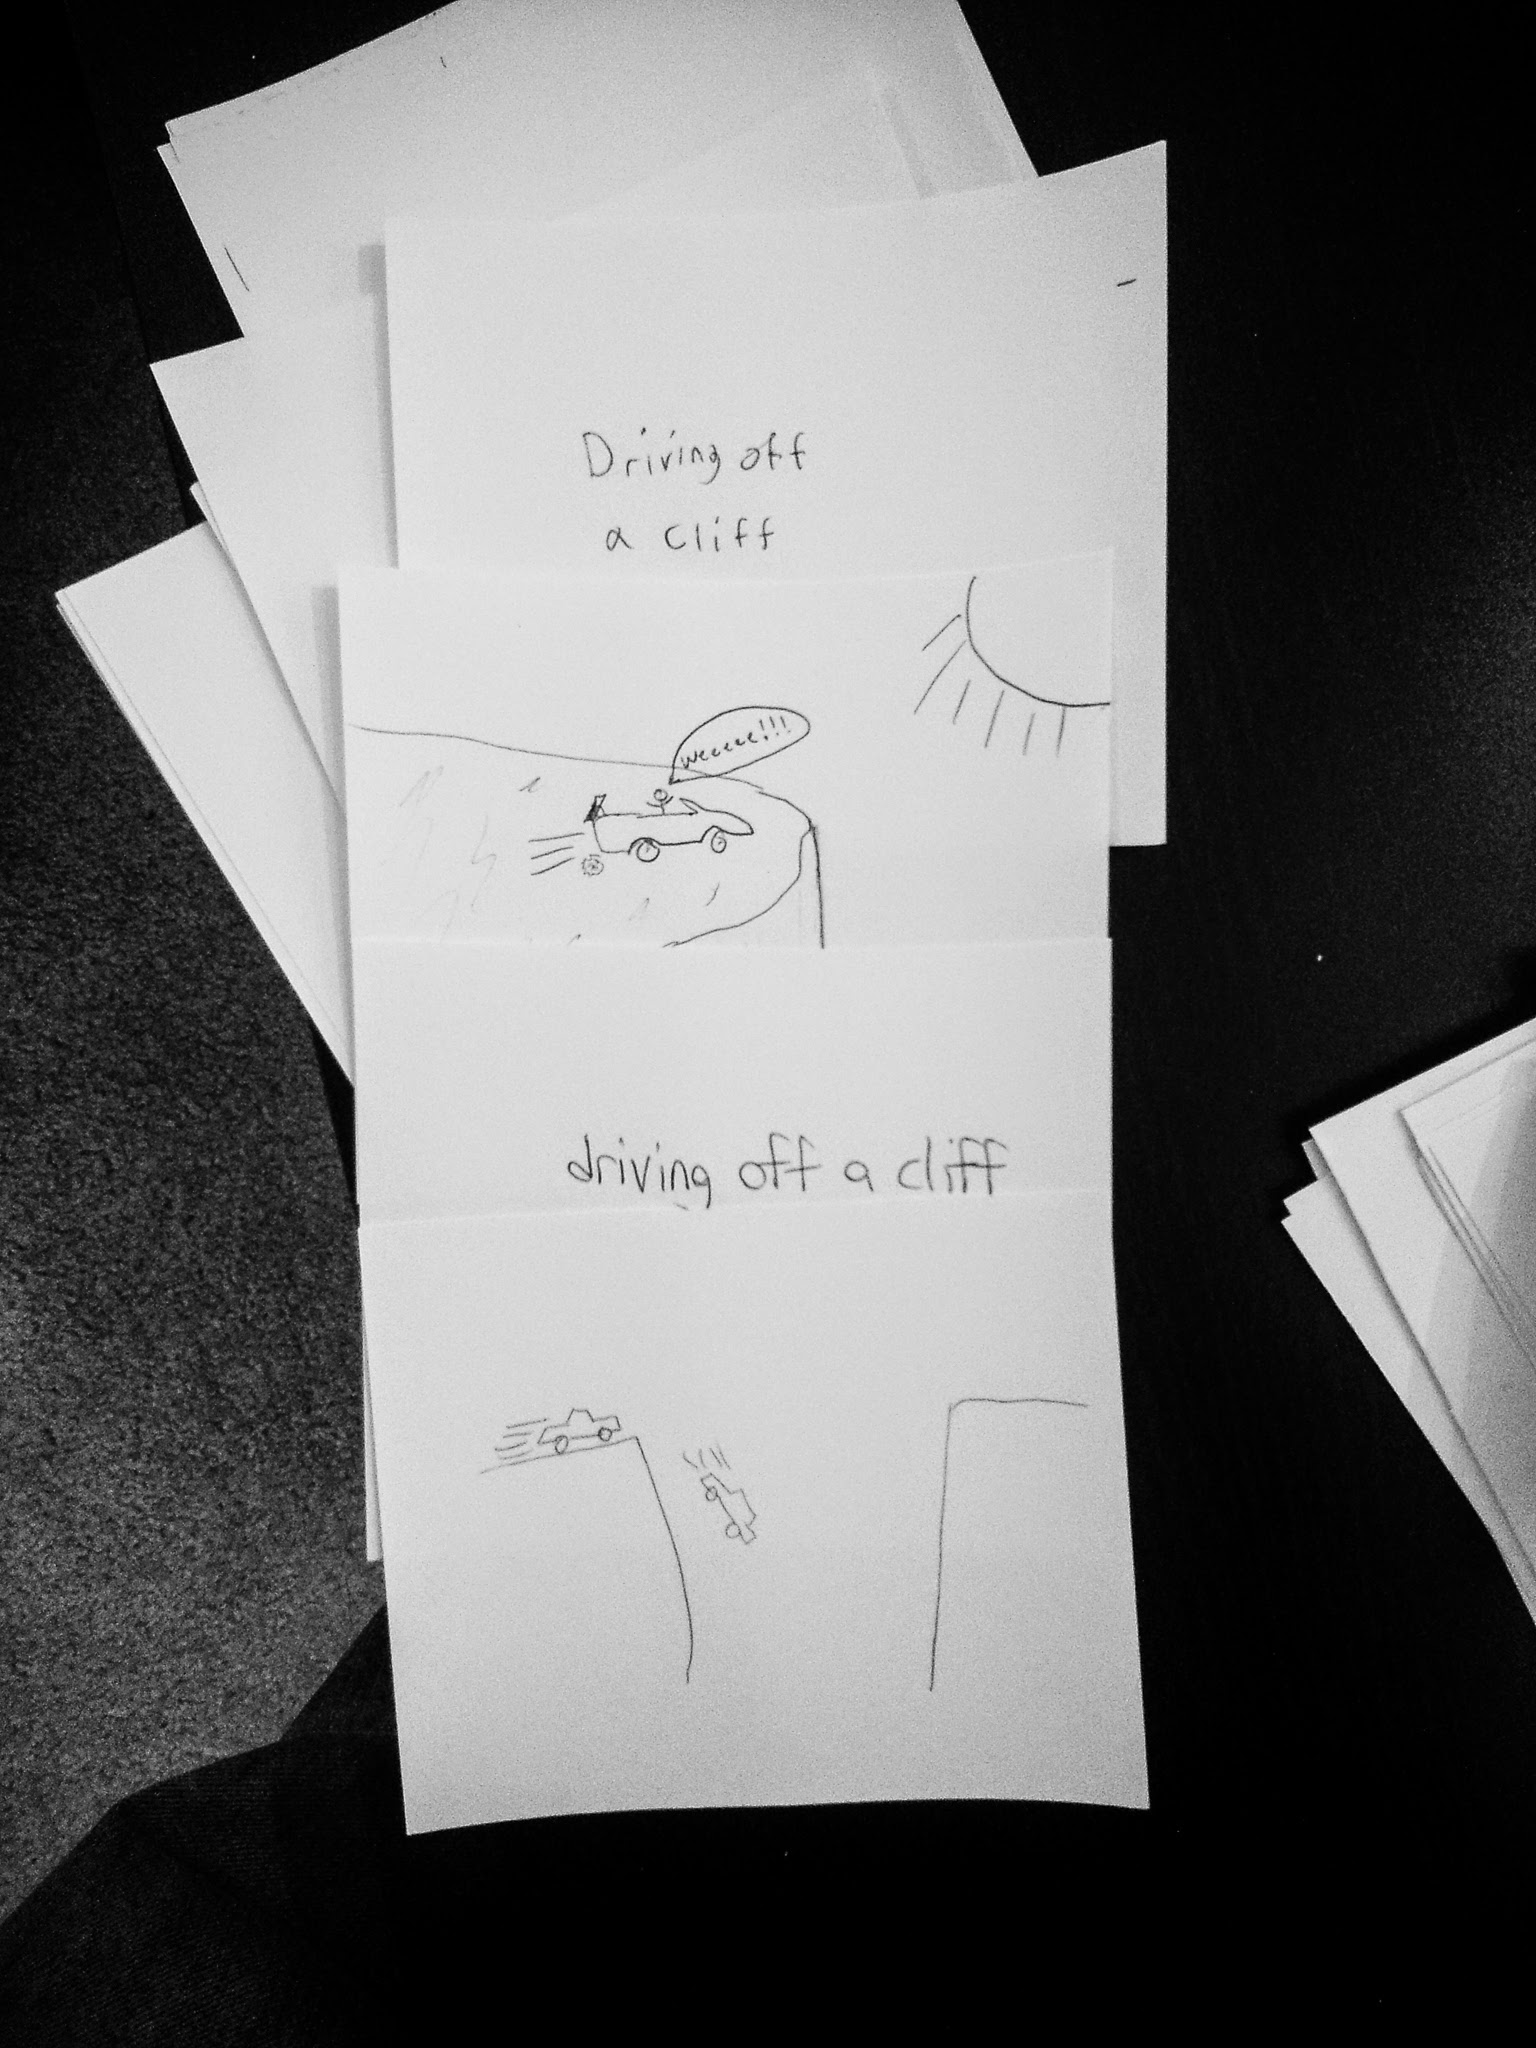 Driving off
a cliff
weeeee!!!
driving off a cliff